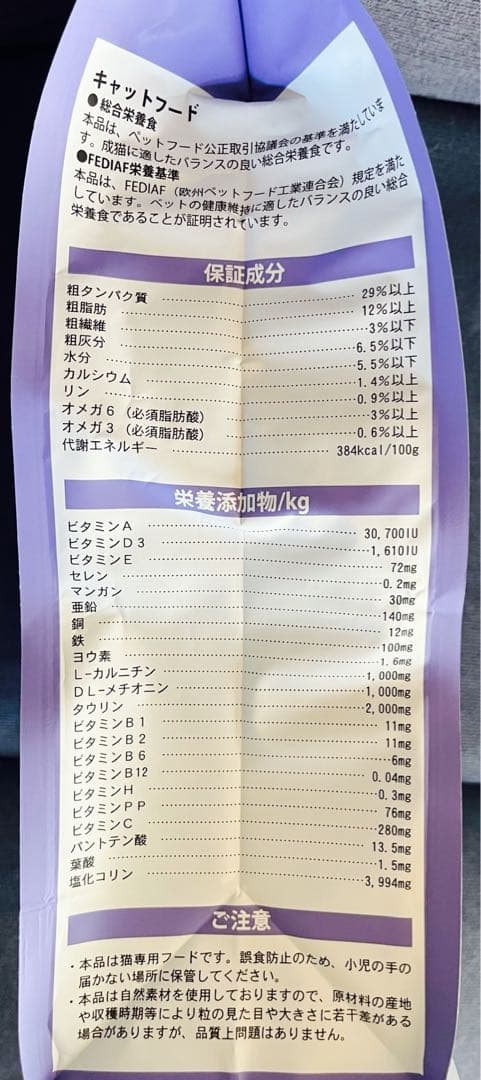 キャットフード
●総合栄養食
本品は、ペットフード公正取引協議会の基準を満たしていま
す。成猫に適したバランスの良い総合栄養食です。
●FEDIAF栄養基準
本品は、FEDIAF（欧州ペットフード工業連合会）規定を満た
しています。ペットの健康維持に適したバランスの良い総合
栄養食であることが証明されています。
保証成分
粗タンパク質 29%以上
粗脂肪 12%以上
粗繊維 3%以下
粗灰分 6.5%以下
水分 5.5%以下
カルシウム 1.4%以上
リン 0.9%以上
オメガ6（必須脂肪酸） 3%以上
オメガ3（必須脂肪酸） 0.6%以上
代謝エネルギー 384kcal/100g
栄養添加物/kg
ビタミンA 30,700IU
ビタミンD3 1,610IU
ビタミンE 72mg
セレン 0.2mg
マンガン 30mg
亜鉛 140mg
銅 12mg
鉄 100mg
ヨウ素 1.6mg
L-カルニチン 1,000mg
DL-メチオニン 1,000mg
タウリン 2,000mg
ビタミンB1 11mg
ビタミンB2 11mg
ビタミンB6 6mg
ビタミンB12 0.04mg
ビタミンH 0.3mg
ビタミンPP 76mg
ビタミンC 280mg
パントテン酸 13.5mg
葉酸 1.5mg
塩化コリン 3,994mg
ご注意
・本品は猫専用フードです。誤食防止のため、小児の手の
届かない場所に保管してください。
・本品は自然素材を使用しておりますので、原材料の産地
や収穫時期等により粒の見た目や大きさに若干差がある
場合がありますが、品質上問題はありません。